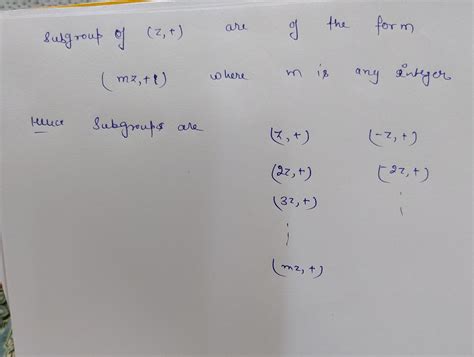 Subgroup of (Z,+) are of the form
(mZ,+) where m is any integer
Hence Subgroups are (Z,+) (-Z,+)
(2Z,+) (-2Z,+)
(3Z,+)
(mZ,+)